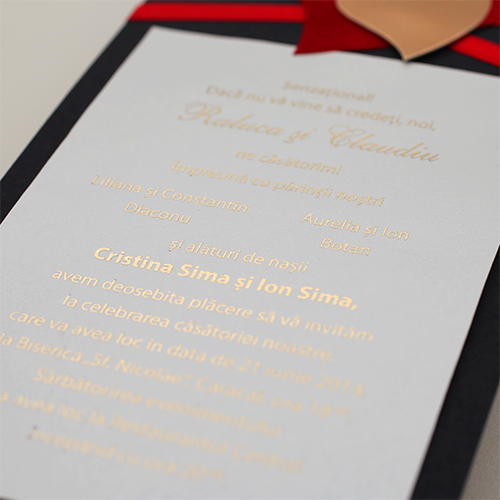 Senzaţional!
Dacă nu vă vine să credeţi, noi,
Raluca şi Claudiu
ne căsătorim!
Împreună cu părinţii noştri
Liliana şi Constantin
Diaconu
Aurelia şi Ion
Botan
şi alături de naşii
Cristina Sima şi Ion Sima,
avem deosebita plăcere să vă invităm
la celebrarea căsătoriei noastre,
care va avea loc în data de 21 iunie 2014,
la Biserica „Sf. Nicolae”, Caracal, ora
Sărbătorirea evenimentului
va avea loc la Restaurantul
începând cu ora